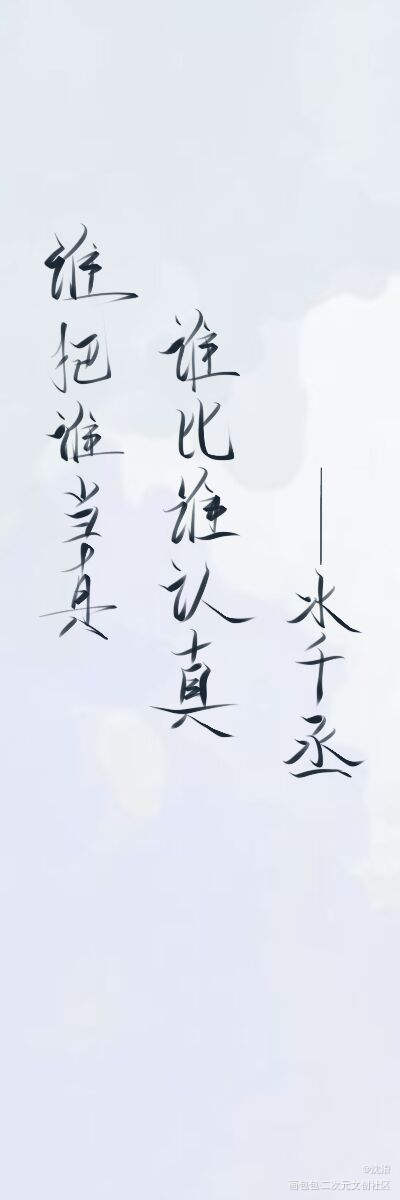 谁把谁当真
谁比谁认真
——水千丞
@沈浪
画包包二次元文创社区